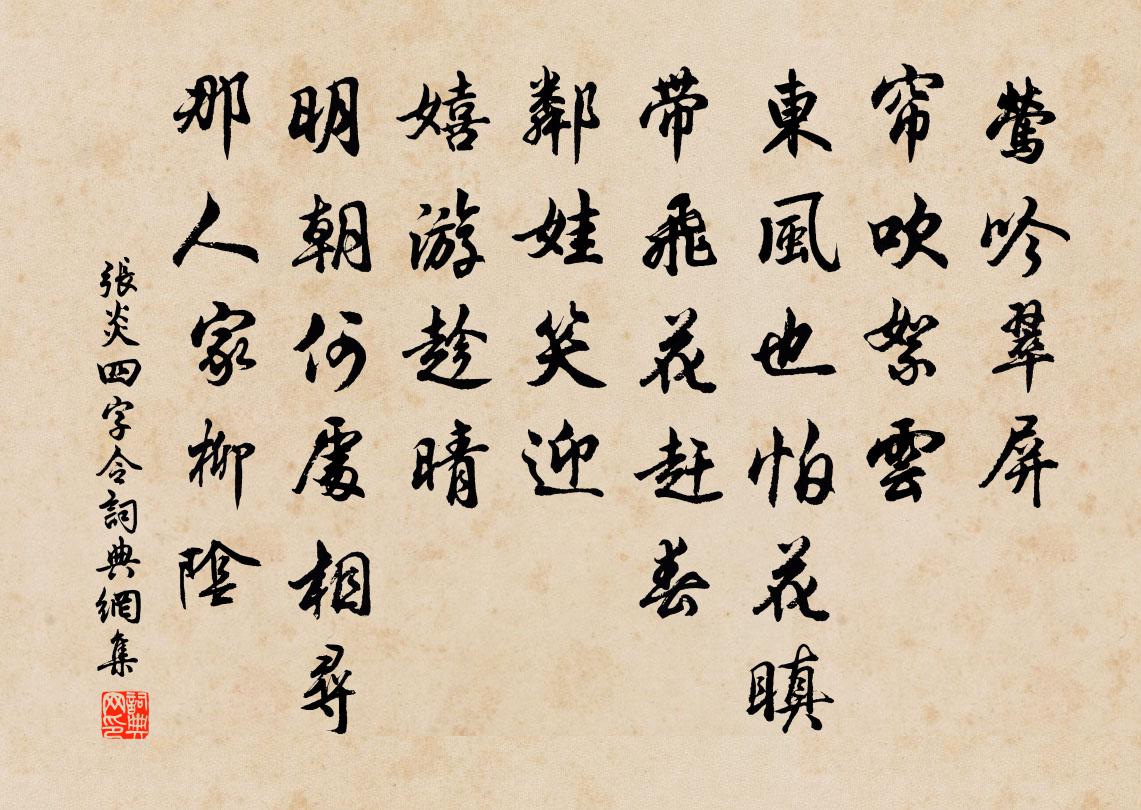 鶯吟翠屏
帘吹絮雲
東風也怕花瞋
帶飛花赶春
鄰娃笑迎
嬉游趁晴
明朝何處相尋
那人家柳陰
張炎四字令詞典網集
詞典网印